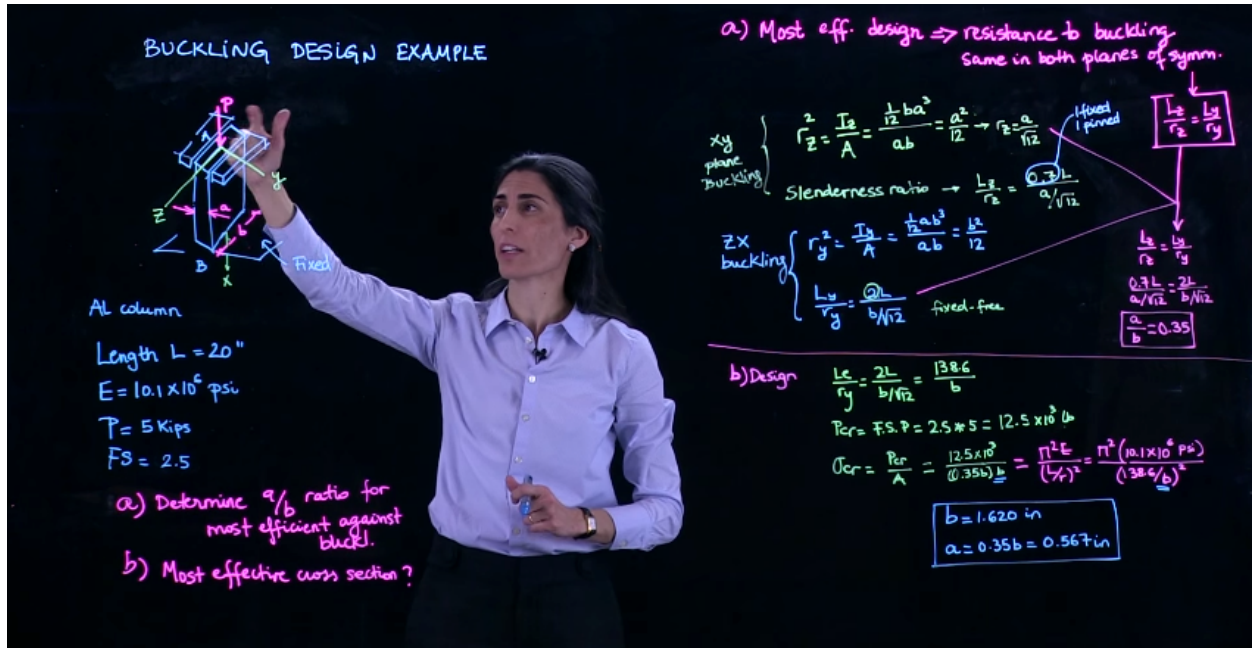 BUCKLING DESIGN EXAMPLE
P
A
y
Z
a
b
B
Fixed
x
AL column
Length L = 20"
E = 10.1x10⁶ psi
P = 5 Kips
FS = 2.5
a) Determine a/b ratio for
most efficient against
buckl.
b) Most effective cross section?
a) Most eff. design => resistance to buckling
same in both planes of symm.
Lz/rz = Ly/ry
1 fixed
1 pinned
xy
plane
Buckling
rz² = Iz/A = (1/12 ba³)/(ab) = a²/12 → rz = a/√12
Slenderness ratio → Lz/rz = 0.7L/(a/√12)
ZX
buckling
ry² = Iy/A = (1/12 ab³)/(ab) = b²/12
Ly/ry = 2L/(b/√12) fixed-free
Lz/rz = Ly/ry
0.7L/(a/√12) = 2L/(b/√12)
a/b = 0.35
b) Design
Le/ry = 2L/(b/√12) = 138.6/b
Pcr = F.S.P = 2.5 * 5 = 12.5 x10³ lb
σcr = Pcr/A = 12.5x10³/((0.35b)b) = π²E/(L/r)² = π²(10.1x10⁶ psi)/(138.6/b)²
b = 1.620 in
a = 0.35b = 0.567 in